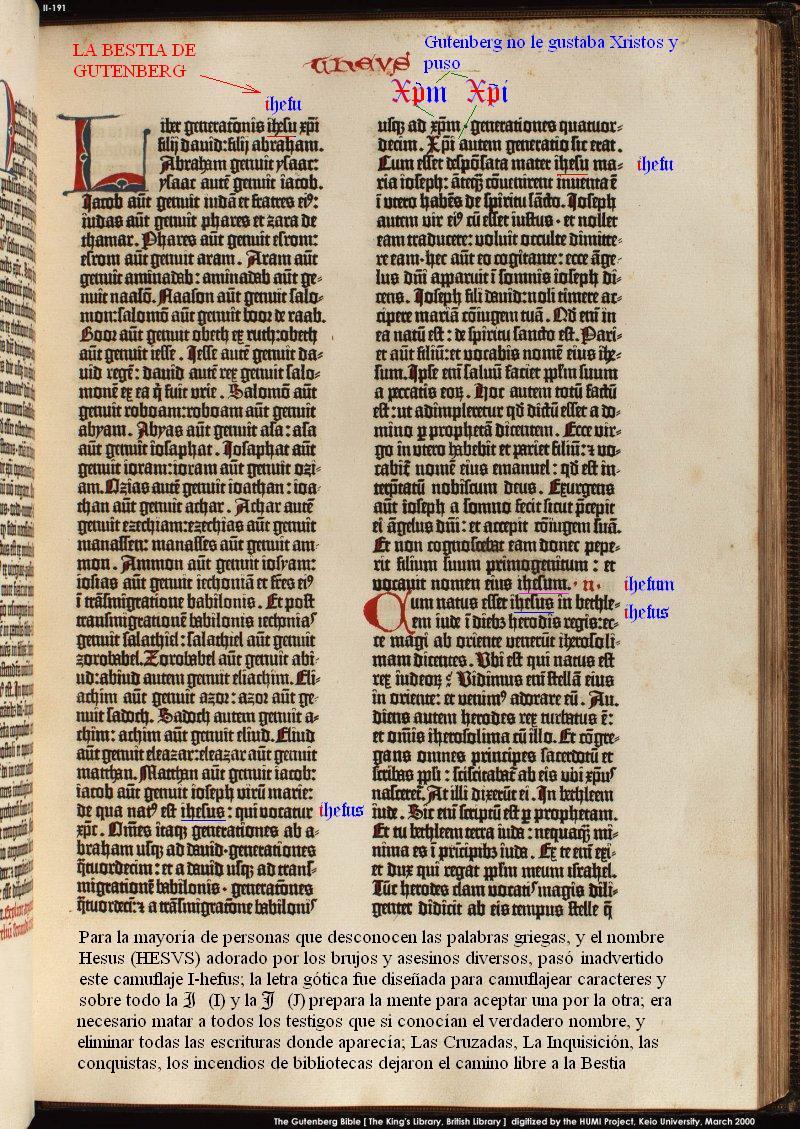 II-191
LA BESTIA DE
GUTENBERG
ihesu
Gutenberg no le gustaba Xristos y
puso
Xp̄m Xp̄i
iher generatōnis ihesu xp̄i
filij dauid: filij abraham.
Abraham genuit ysaac:
ysaac autē genuit iacob.
Jacob aūt genuit iudā et fratres eiꝰ:
iudas aūt genuit phares et zara de
thamar. Phares aūt genuit esrom:
esrom aūt genuit aram. Aram aūt
genuit aminadab: aminadab aūt ge-
nuit naasō. Naason aūt genuit salo-
mon: salomō aūt genuit booz de raab.
Booz aūt genuit obeth ex ruth: obeth
aūt genuit iesse. Iesse autē genuit da-
uid regē: dauid autē rex genuit salo-
monē ex ea q̄ fuit vrie. Salomō aūt
genuit roboam: roboam aūt genuit
abyam. Abyas aūt genuit asa: asa
aūt genuit iosaphat. Iosaphat aūt
genuit ioram: ioram aūt genuit ozi-
am. Ozias autē genuit ioathan: ioa-
than aūt genuit achaz. Achaz autē
genuit ezechiam: ezechias aūt genuit
manassen: manasses aūt genuit am-
mon. Ammon aūt genuit iosyam:
iosias aūt genuit iechoniā et fr̄es eiꝰ
ī trāsmigratione babilonis. Et post
transmigrationē babilonis iechoniaꝰ
genuit salathiel: salathiel aūt genuit
zorobabel. Zorobabel aūt genuit abi-
ud: abiud autem genuit eliachim. Eli-
achim aūt genuit azor: azor aūt ge-
nuit sadoch. Sadoch autem genuit a-
chim: achim aūt genuit eliud. Eliud
aūt genuit eleazar: eleazar aūt genuit
matthan. Matthan aūt genuit iacob:
iacob aūt genuit ioseph virū marie:
de qua natꝰ est ihesus: qui vocatur
xp̄c. Om̄es itaqꝫ generationes ab a-
braham usqꝫ ad dauid · generationes
q̄tuordecim: et a dauid usqꝫ ad trans-
migrationē babilonis · generatōnes
q̄tuordecī: ⁊ a trāsmigratōne babiloniꝰ
ihesus
usqꝫ ad xp̄m · generationes quatuor-
decim. Xp̄i autem generatio sic erat.
Cum esset despōsata mater ihesu ma-
ria ioseph: āteqꝫ cōuenirent inuenta ē
ī vtero habēs de spiritu sācto. Ioseph
autem vir eiꝰ cū esset iustus · et nollet
eam traducere: voluit occulte dimitte-
re eam. hec aūt eo cogitante: ecce āge-
lus dn̄i apparuit ī somnis ioseph di-
cens. Ioseph fili dauid: noli timere ac-
cipere mariā cōiugem tuā. Qd̄ enī in
ea natū est: de spiritu sancto est. Pari-
et aūt filiū: et vocabis nomē eius ihe-
sum. Ipse enī saluū faciet pp̄lm suum
a peccatis eoꝝ. Hoc autem totū factū
est: ut adimpleretur qd̄ dictū esset a do-
mino ꝑ prophetā dicentem. Ecce vir-
go in utero habebit et pariet filiū: ⁊ vo-
cabit̄ nomē eius emanuel: qd̄ est in-
terp̄tatū nobiscum deus. Exurgens
aūt ioseph a somno fecit sicut p̄cepit
ei āgelus dn̄i: et accepit cōiugem suā.
Et non cognoscebat eam donec pepe-
rit filium suum primogenitum: et
vocauit nomen eius ihesum. · ii ·
Cum natus esset ihesus in bethle-
em iude ī diebꝫ herodis regis: ec-
ce magi ab oriente venerūt iherosoli-
mam dicentes. Vbi est qui natus est
rex iudeoꝝ? Vidimus enī stellā eius
in oriente: et venimꝰ adorare eū. Au-
diens autem herodes rex turbatus ē:
et om̄is iherosolima cū illo. Et cōgre-
gans omnes principes sacerdotū et
scribas pp̄li: sciscitabat̄ ab eis vbi xp̄uꝰ
nasceret̄. At illi dixerūt ei. In bethleem
iude. Sic enī scriptū est ꝑ prophetam.
Et tu bethleem terra iuda: nequaqꝫ mi-
nima es ī pricipibꝫ iuda. Ex te enī exi-
et dux qui regat pp̄lm meum israhel.
Tūc herodes clam vocatiꝰ magis dili-
genter didicit ab eis tempus stelle q̄
ihesu
ihesum
ihesus
Para la mayoría de personas que desconocen las palabras griegas, y el nombre
Hesus (HESVS) adorado por los brujos y asesinos diversos, pasó inadvertido
este camuflaje I-hefus; la letra gótica fue diseñada para camuflajear caracteres y
sobre todo la I (I) y la J (J) prepara la mente para aceptar una por la otra; era
necesario matar a todos los testigos que si conocían el verdadero nombre, y
eliminar todas las escrituras donde aparecía; Las Cruzadas, La Inquisición, las
conquistas, los incendios de bibliotecas dejaron el camino libre a la Bestia
The Gutenberg Bible [ The King's Library, British Library ] digitized by the HUMI Project, Keio University, March 2000